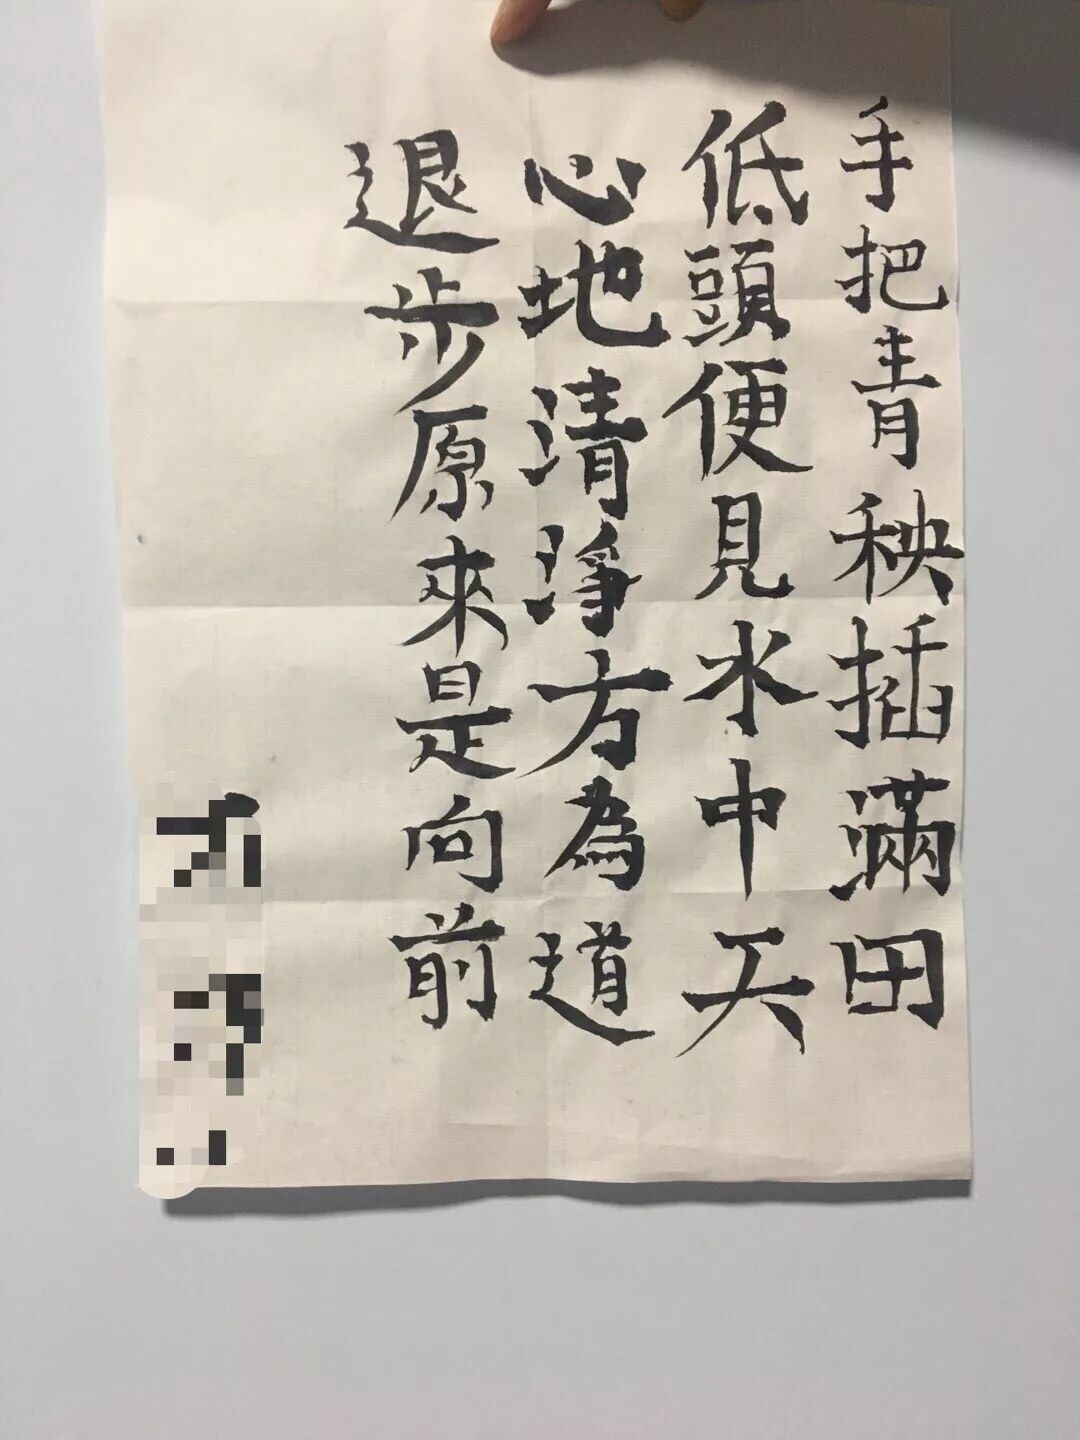 手把青秧插滿田
低頭便見水中天
心地清淨方為道
退步原來是向前